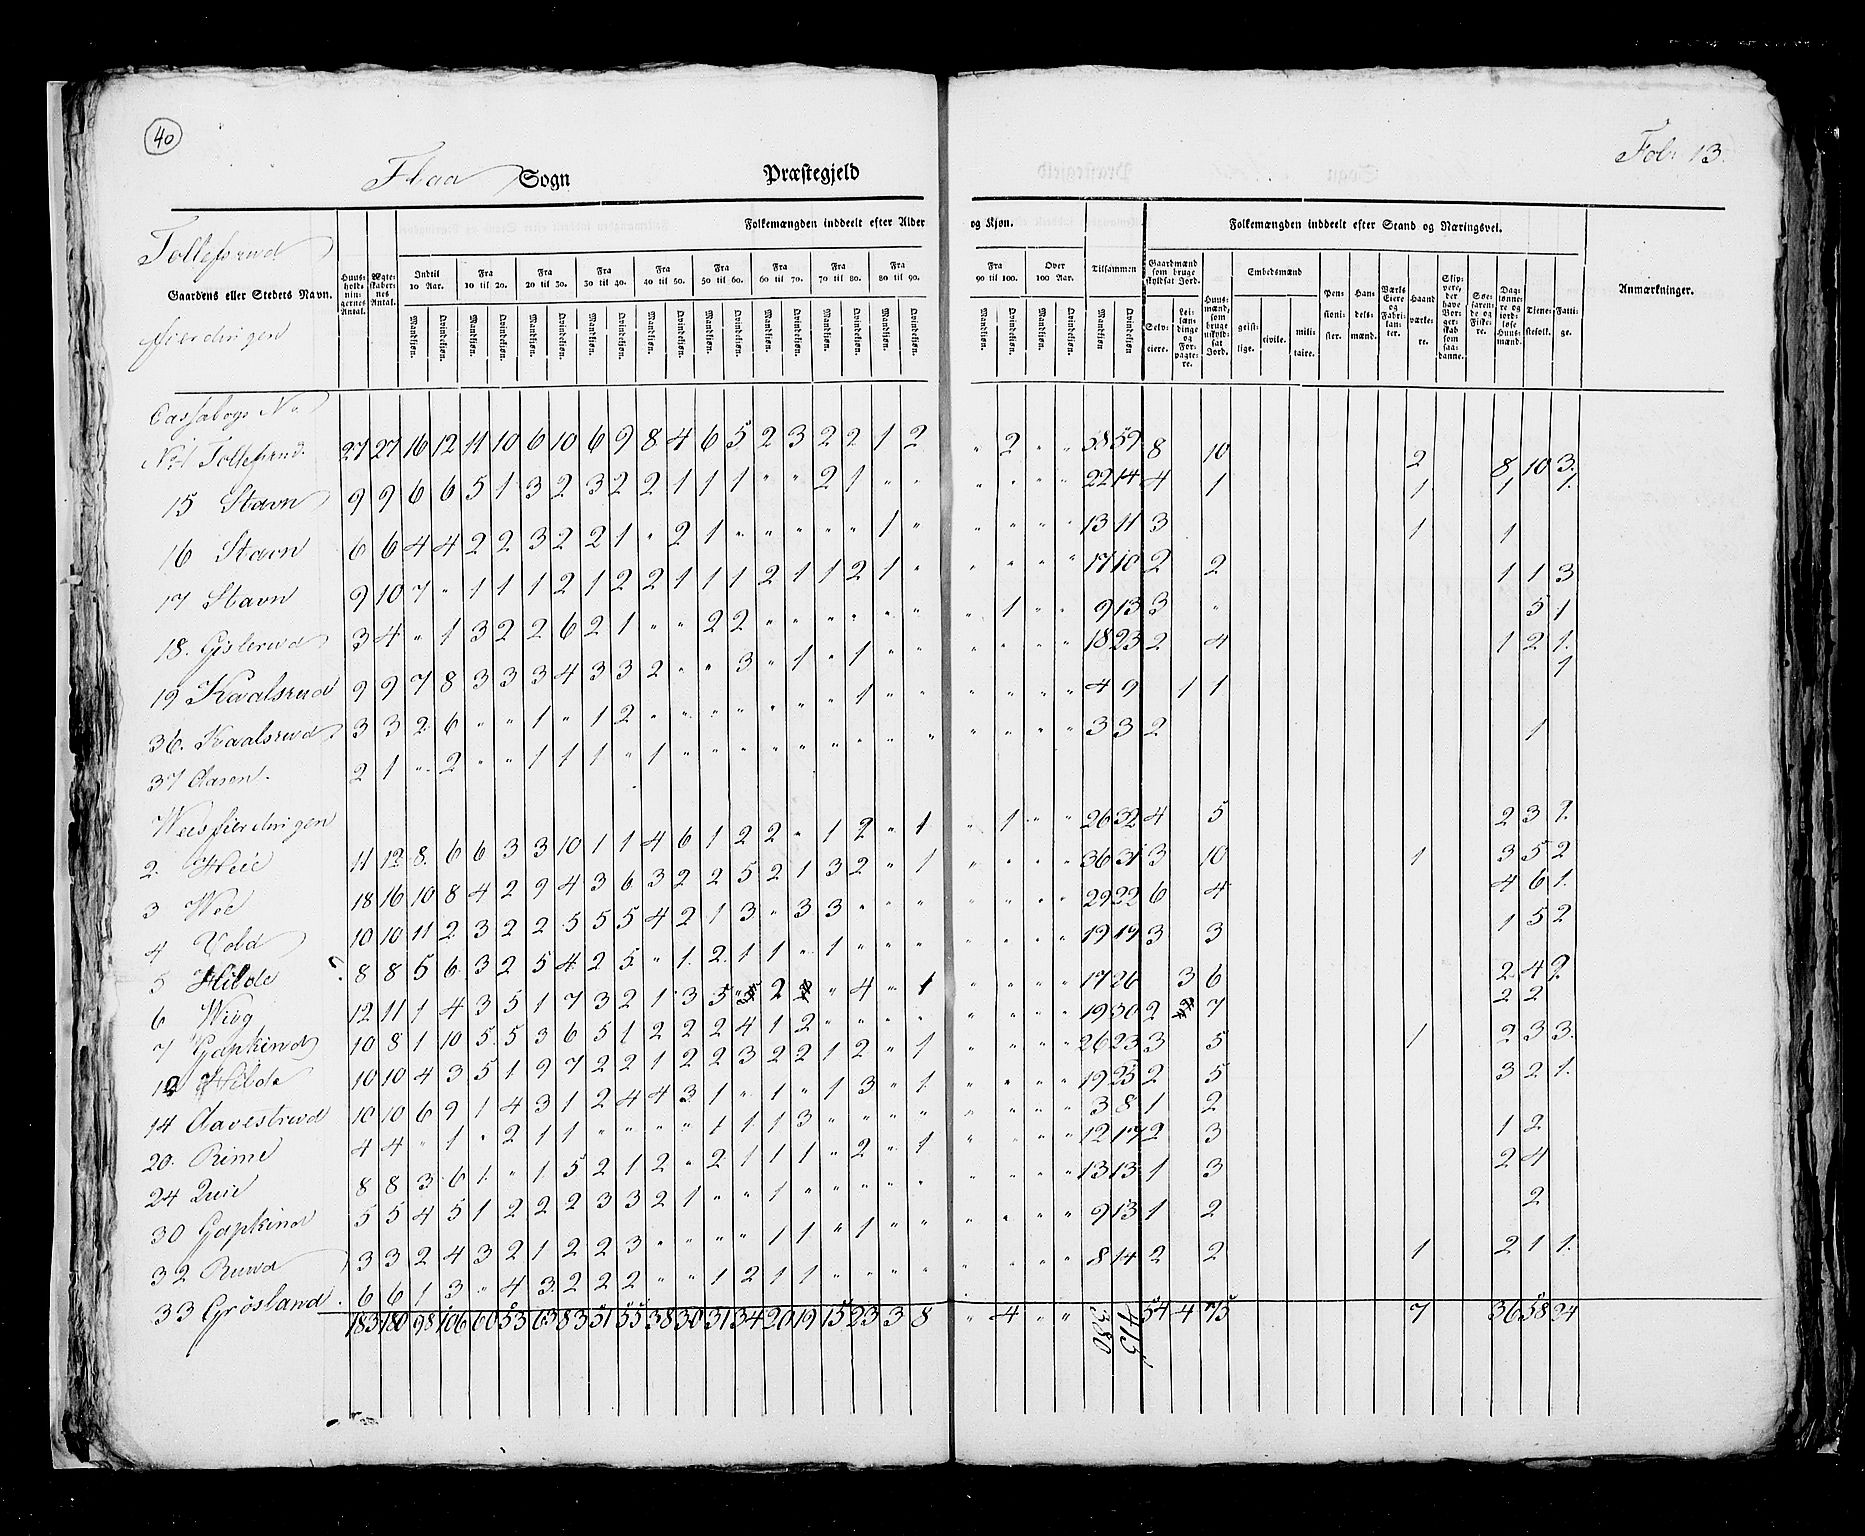 40
Fol. 13.
Flaa Sogn Præstegjeld
Tollefsrud
fierdingen
Gaardens eller Stedets Navn.
Huus-holdningernes Antal.
Ægteskabernes Antal.
Folkemængden inddeelt efter Alder og Kjøn.
Indtil 10 Aar. Fra 10 til 20. Fra 20 til 30. Fra 30 til 40. Fra 40 til 50. Fra 50 til 60. Fra 60 til 70. Fra 70 til 80. Fra 80 til 90. Fra 90 til 100. Over 100 Aar. Tilsammen
Mandkjøn. Qvindekjøn.
Folkemængden inddeelt efter Stand og Næringsvei.
Gaardmænd som bruge skyldsat Jord.
Selveiere.
Leilændinge og Forpagtere.
Huusmænd, som bruge uskyldsat Jord.
Embedsmænd
geistlige. civile. militaire.
Pensionister.
Handelsmænd.
Værks Eiere og Fabrikanter.
Haandværkere.
Skippere, der have Borgerskab som saadanne.
Søefarende og Fiskere.
Daglønnere og jordløse Huusmænd.
Tjenestefolk.
Fattige.
Anmærkninger.
No 1 Tollefsrud. 27 27 16 12 11 10 6 10 6 9 8 4 6 5 2 3 2 2 1 2 " 2 " " 58 59 8 10 2 8 10 3.
15 Stavn 9 9 6 6 5 1 3 2 3 2 2 1 1 1 " " 2 1 " " " " " " 22 14 4 1 1 1 1.
16 Stavn 6 6 4 4 2 2 3 2 2 1 " 2 1 " " " " " 1 " " " " " 13 11 3 1 1
17 Stavn 9 10 7 " 1 1 1 2 1 2 2 1 1 1 2 1 1 2 1 " " " " " 17 10 2 2 1 1 3
18. Gislerud 3 4 " 1 3 2 2 6 2 1 " " 2 2 " " " " " " " 1 " " 9 13 3 " 5 1
19 Kaalsrud 9 9 7 8 3 3 3 4 3 3 2 " " 3 " 1 " 1 " " " " " " 18 23 2 4 1 2 1.
36. Kaalsrud 3 3 2 6 " " 1 " 1 2 " " " " " " " 1 " " " " " " 4 9 1 1 1
37 Aasen. 2 1 " 2 " " 1 1 1 " 1 " " " " " " " " " " " " " 3 3 2 1
2. Heie 11 12 8 6 6 3 3 10 1 1 4 6 1 2 2 " 1 2 " 1 " 1 " " 26 32 4 5 2 3 2.
3 Wee 18 16 10 8 4 2 9 4 3 6 3 2 2 5 2 1 3 2 " 1 " " " " 36 31 3 10 1 3 5 2
4 Vold 10 10 11 2 3 2 2 5 5 5 4 2 1 3 " 3 3 " " " " " " " 29 22 6 4 4 6 1.
5 Hilde 8 8 5 6 3 2 5 4 2 5 " 1 2 1 1 " 1 " " " " " " " 19 19 3 3 1 5 2
6 12 11 1 4 3 5 1 7 3 2 1 3 5 2 " 4 " 1 " " " " 17 26 3 6 2 4 2.
7 10 8 1 10 5 5 3 6 5 1 2 2 2 4 1 2 " " " " " " " " 19 30 2 7 2 2
12 Hilde 10 10 4 3 5 1 9 7 2 2 1 2 2 3 2 2 1 2 " 1 " " " " 26 23 3 5 1 2 3 3.
14 Aavestrud 10 10 6 9 1 4 3 1 2 4 4 3 1 " 1 " 1 3 " 1 " " " " 19 25 2 5 3 2 1.
20. 4 4 " 1 " 2 1 1 " " " " 1 1 1 3 " " " " " " " " 3 8 1 2
24 8 8 3 6 1 " 1 5 2 1 2 " 2 1 1 1 " 2 " 1 " " " " 12 17 2 3 1 2
30 5 5 4 5 1 2 2 2 3 3 2 1 " " 1 " " " " " " " " " 13 13 1 3 2 4
32 Ruud 3 3 2 4 3 2 1 2 2 3 " " " " 1 1 " 1 " " " " " " 9 13 1 2 2
33 Grøsland 6 6 1 3 " 4 3 2 2 2 " " 1 2 1 1 " " " " " " " " 8 14 2 2 1 2 1 1.
183 180 98 106 60 53 63 83 51 55 38 30 31 34 20 19 15 23 3 8 " 4 " " 380 415 54 4 75 7 36 58 24